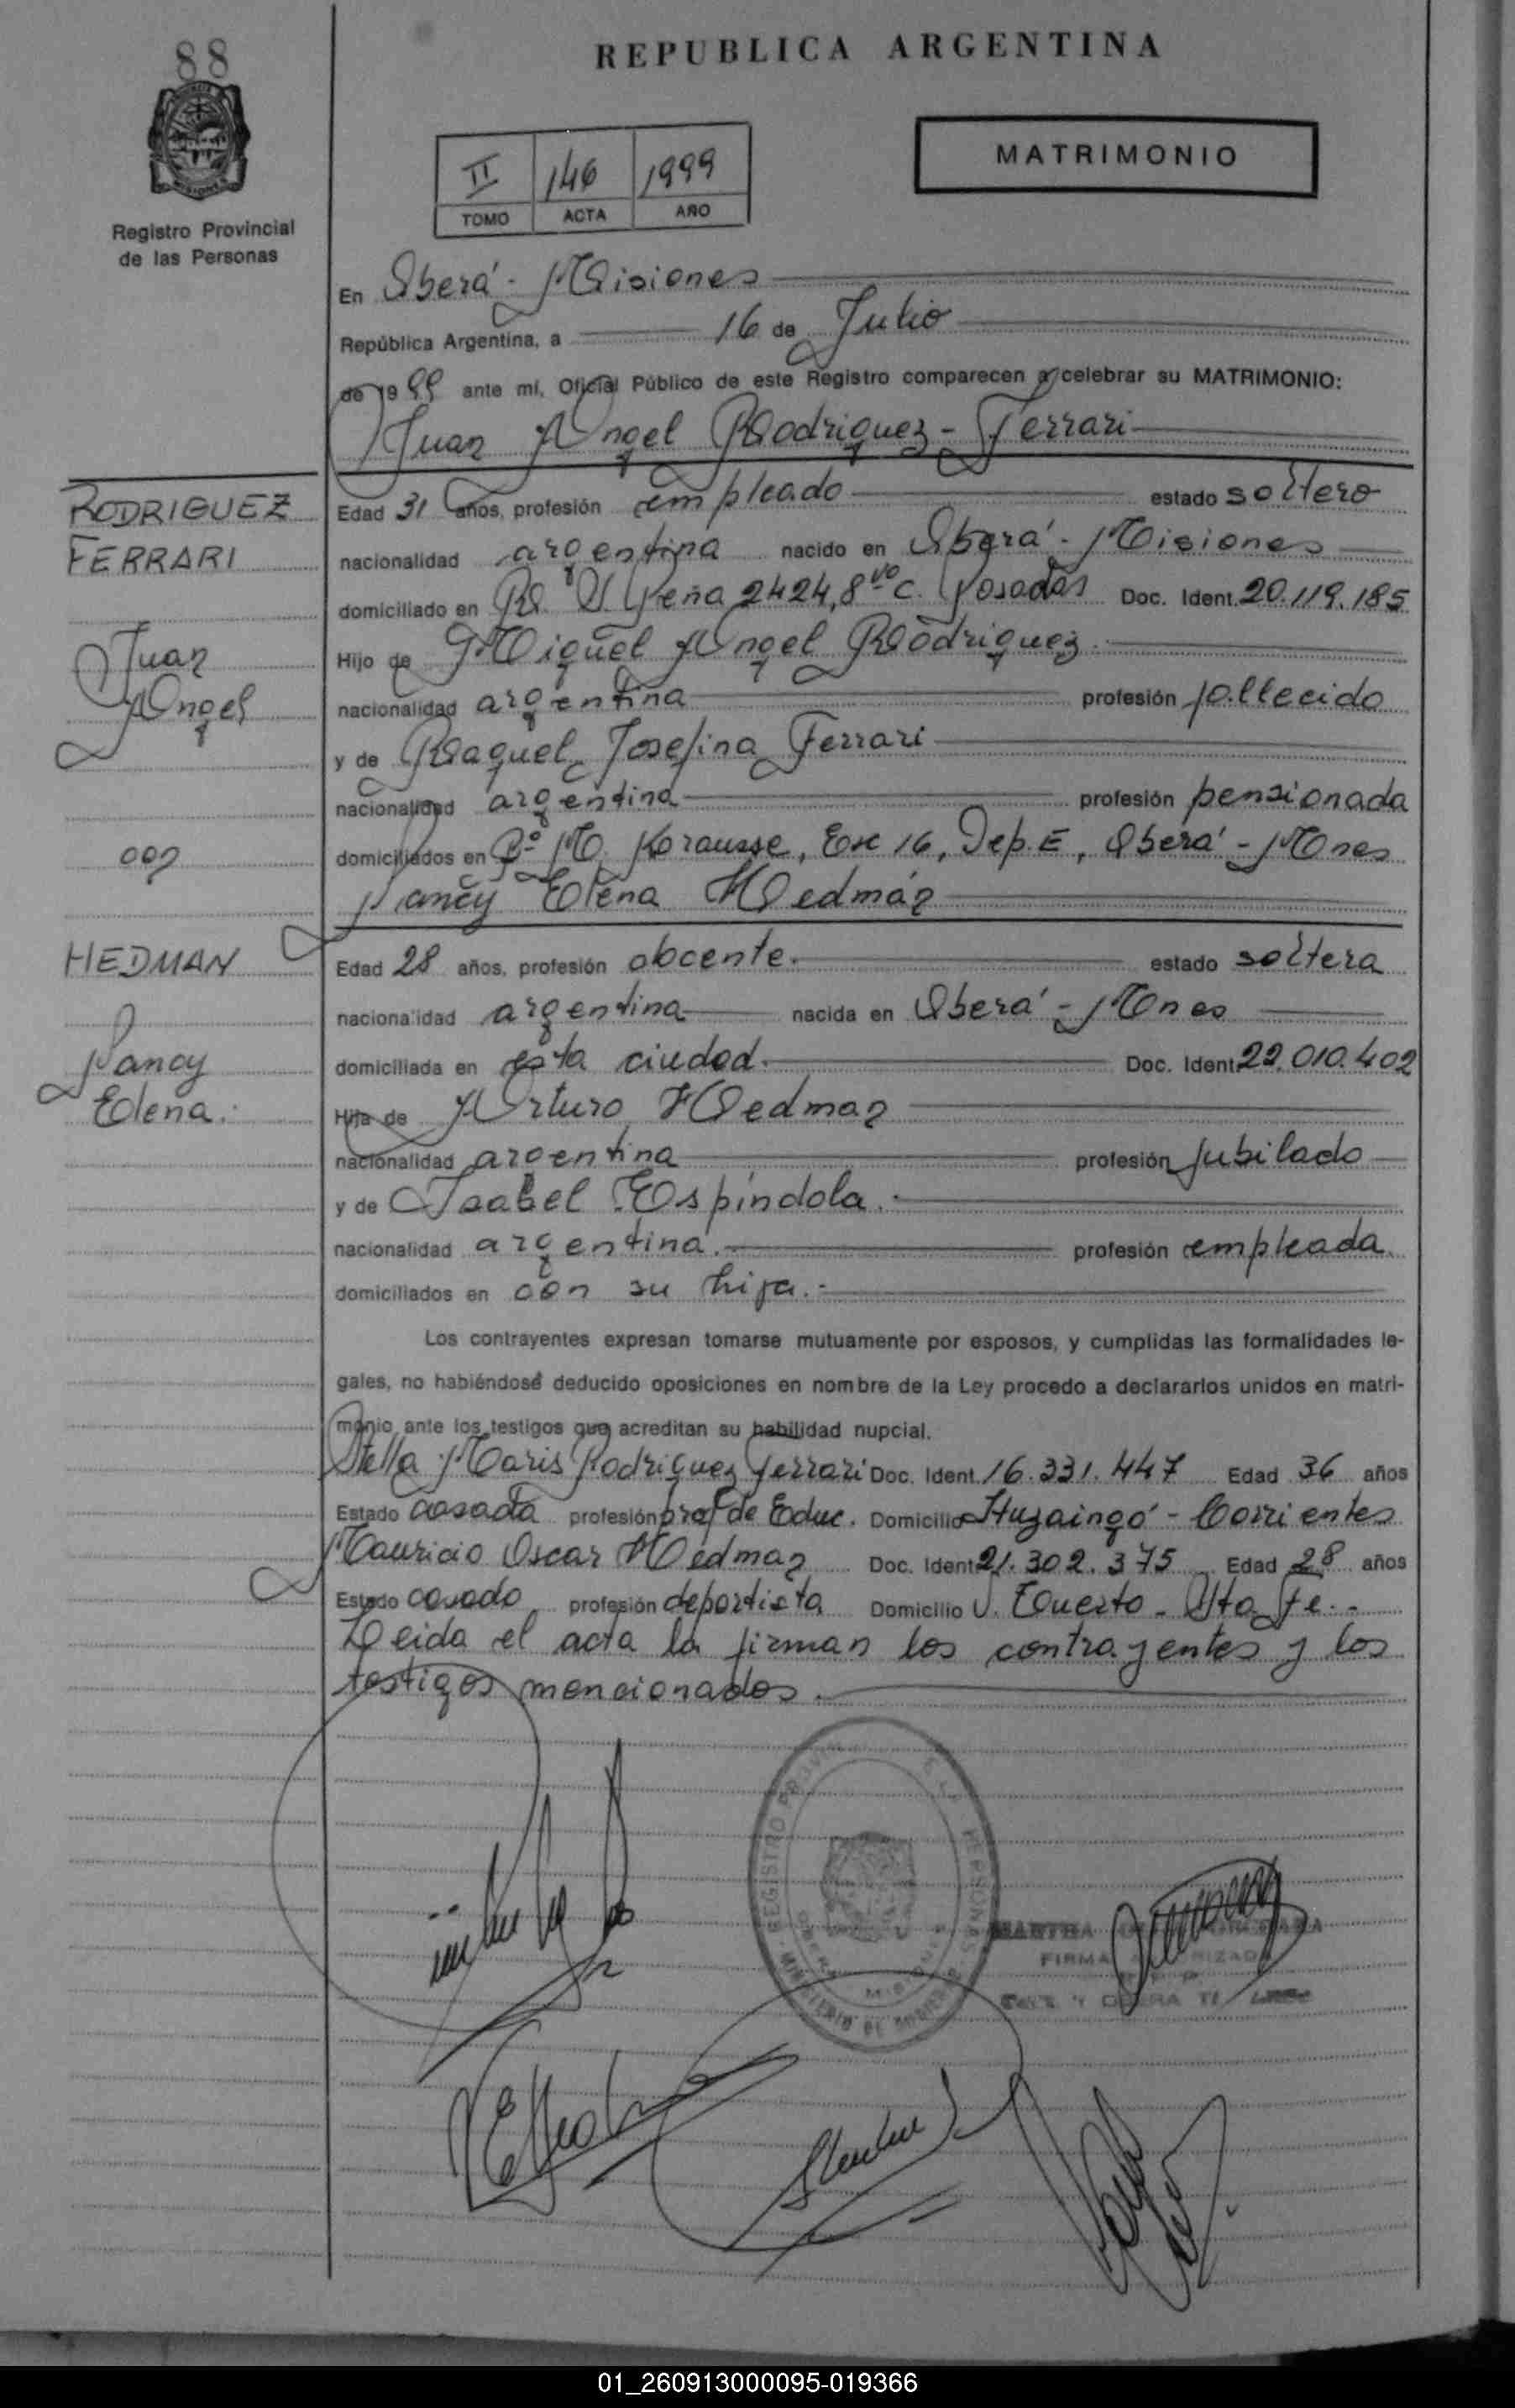 88
REPUBLICA ARGENTINA
MATRIMONIO
II 146 1999
TOMO ACTA AÑO
Registro Provincial
de las Personas
En Oberá - Misiones
República Argentina, a 16 de Julio
de 1999 ante mí, Oficial Público de este Registro comparecen a celebrar su MATRIMONIO:
Juan Angel Rodriguez - Ferrari
RODRIGUEZ
FERRARI
Juan
Angel
con
Edad 31 años, profesión empleado estado soltero
nacionalidad argentina nacido en Oberá - Misiones
domiciliado en R. S. Peña 2424, 8vo C. Posadas Doc. Ident. 20.119.185
Hijo de Miguel Angel Rodriguez
nacionalidad argentina profesión fallecido
y de Raquel Josefina Ferrari
nacionalidad argentina profesión pensionada
domiciliados en Bº M. Krausse, Esc 16, Dep. E, Oberá - Mnes
Nancy Elena Hedman
HEDMAN
Nancy
Elena.
Edad 28 años, profesión docente. estado soltera
nacionalidad argentina nacida en Oberá - Mnes
domiciliada en esta ciudad. Doc. Ident. 22.010.402
Hija de Arturo Hedman
nacionalidad argentina profesión jubilado
y de Isabel Espíndola.
nacionalidad argentina. profesión empleada
domiciliados en con su hija.-
Los contrayentes expresan tomarse mutuamente por esposos, y cumplidas las formalidades le-
gales, no habiéndose deducido oposiciones en nombre de la Ley procedo a declararlos unidos en matri-
monio ante los testigos que acreditan su habilidad nupcial.
Stella Maris Rodriguez Ferrari Doc. Ident. 16.331.447 Edad 36 años
Estado casada profesión prof de Educ. Domicilio Ituzaingó - Corrientes
Mauricio Oscar Hedman Doc. Ident. 21.302.375 Edad 28 años
Estado casado profesión deportista Domicilio V. Tuerto - Sta Fe.-
Leida el acta la firman los contrayentes y los
testigos mencionados.
REGISTRO PERSONAS
MINISTERIO DE GOBIERNO
MARTHA
FIRMA
01_260913000095-019366